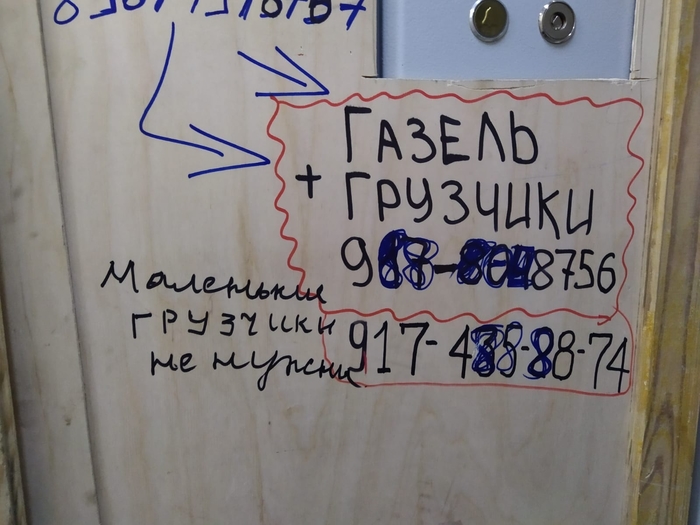 ГАЗЕЛЬ
+ ГРУЗЧИКИ
8756
Маленьки
ГРУЗЧИКИ
не нужны
917-485-88-74